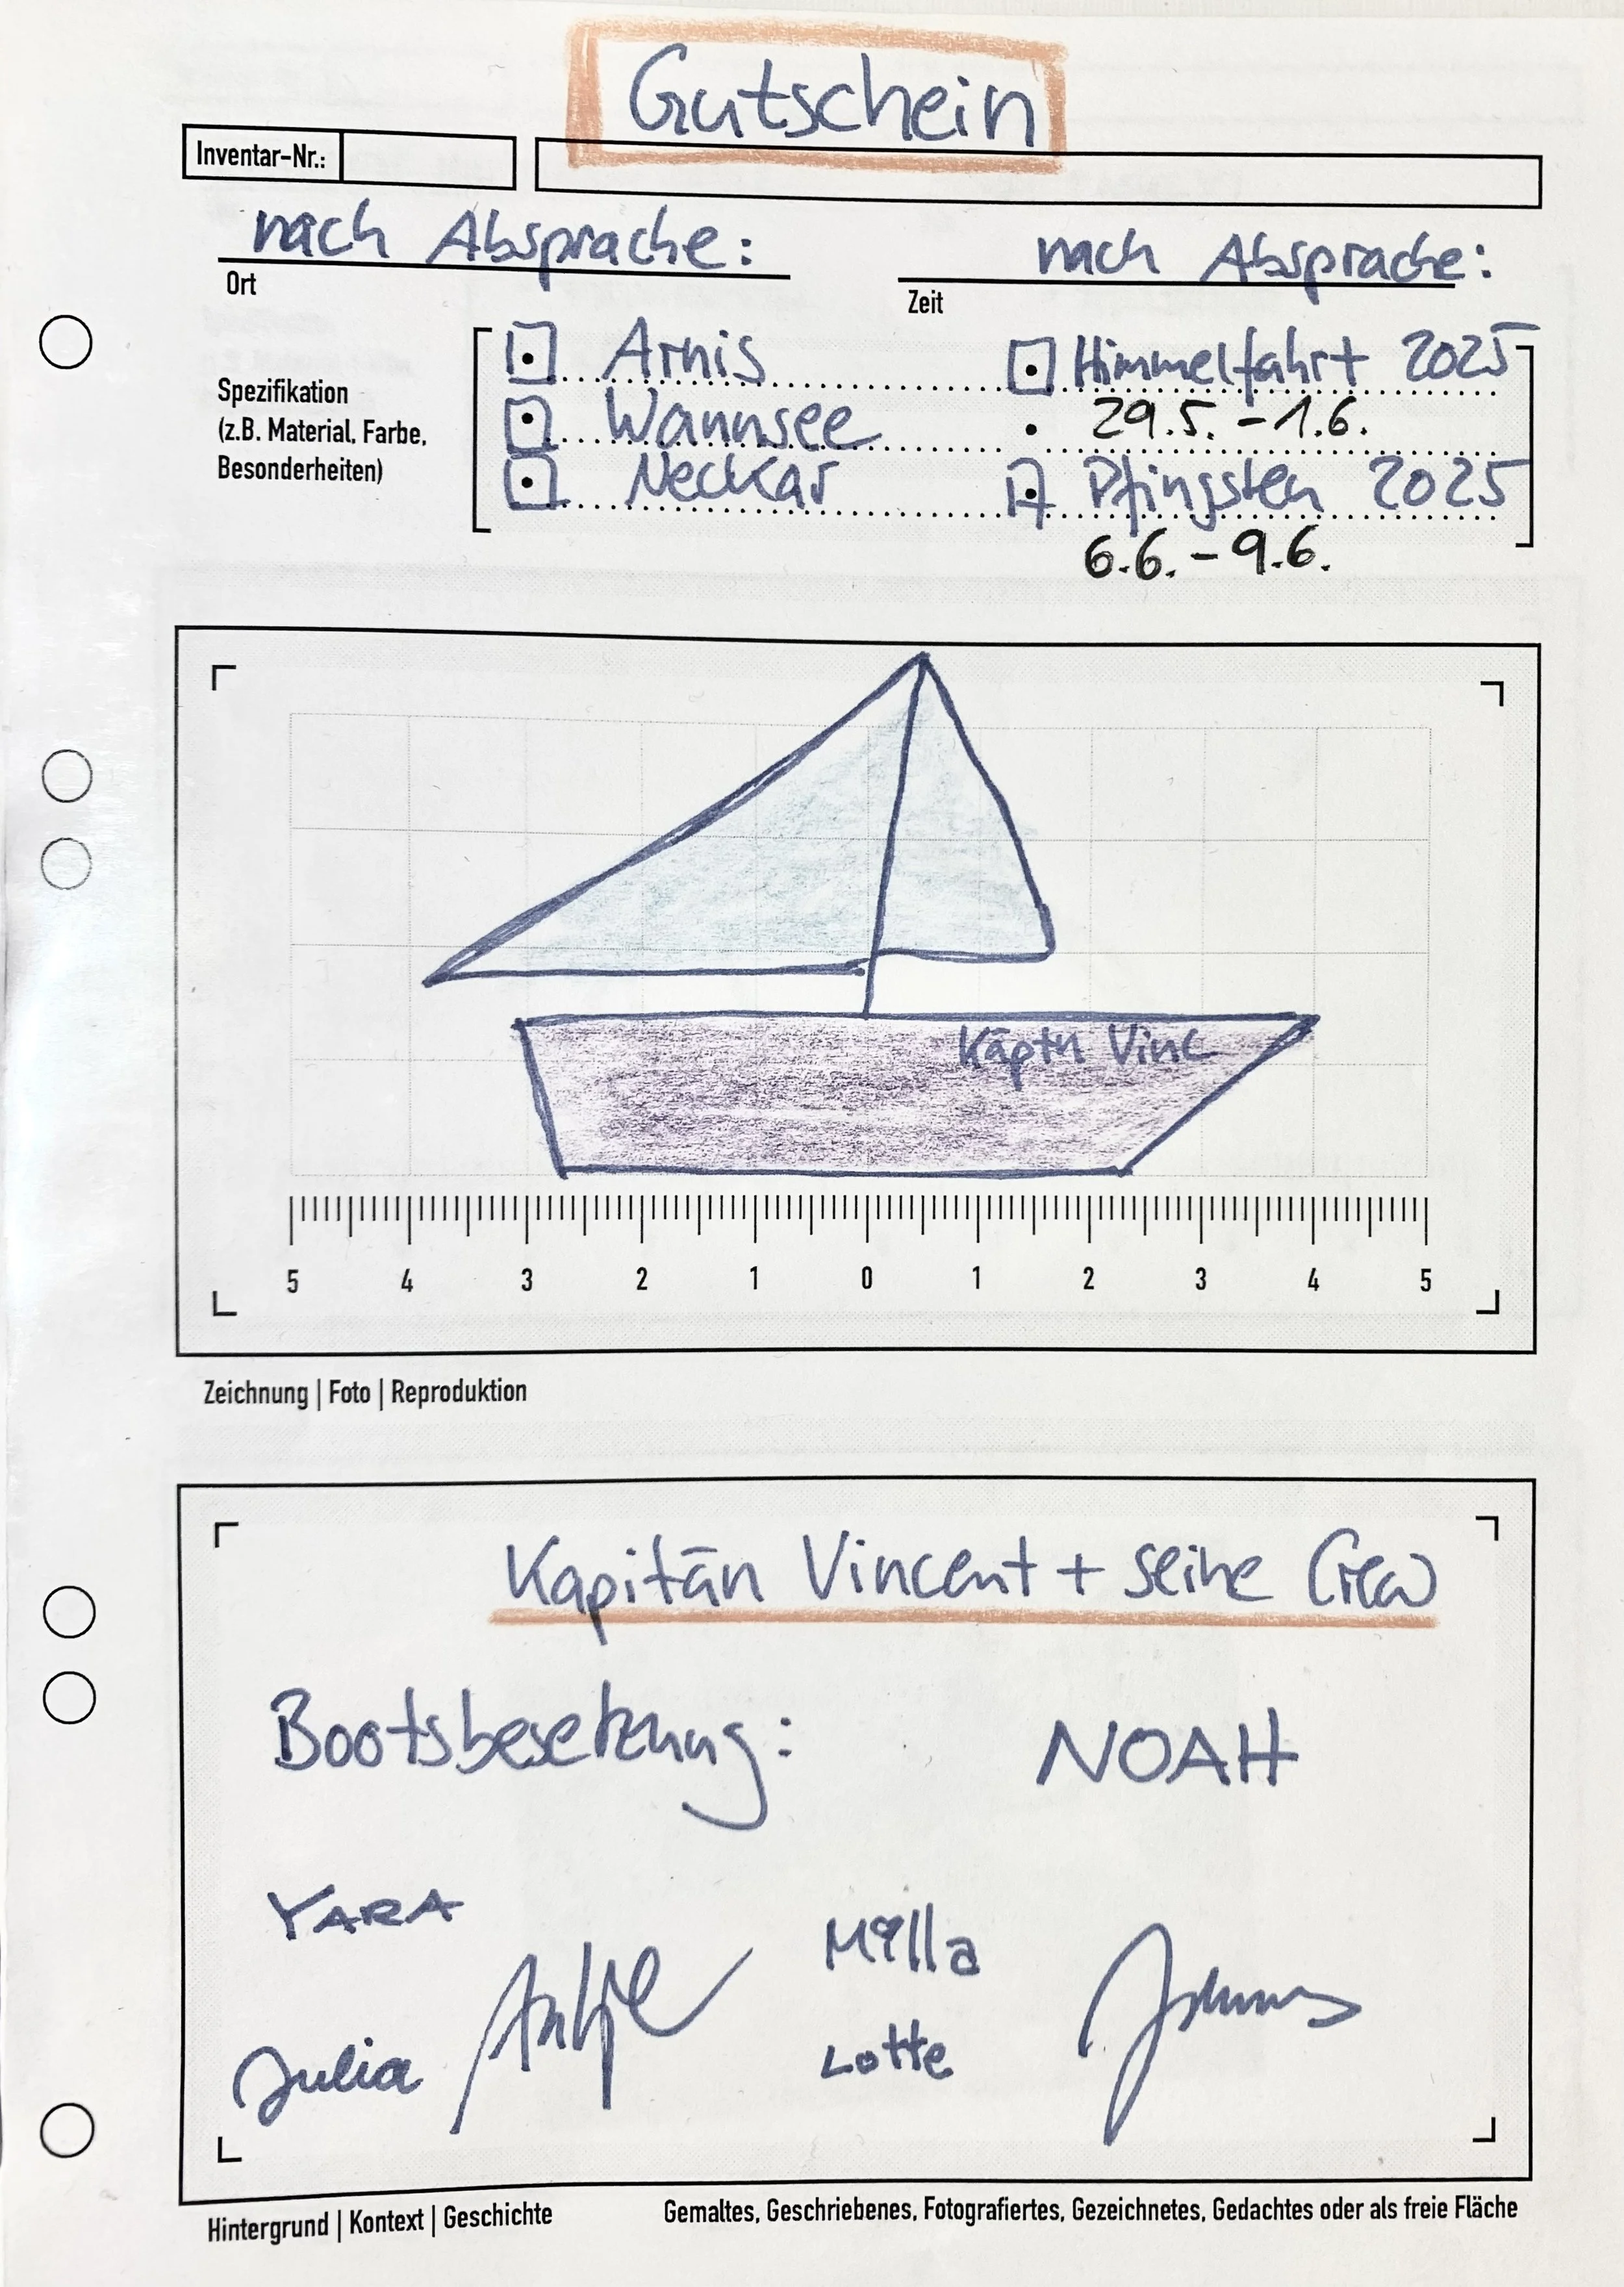 Gutschein
Inventar-Nr.:
nach Absprache: nach Absprache:
Ort Zeit
Spezifikation
(z.B. Material, Farbe,
Besonderheiten)
Arnis Himmelfahrt 2025
Wannsee 29.5. - 1.6.
Neckar Pfingsten 2025
6.6. - 9.6.
Käptn Vinc
5 4 3 2 1 0 1 2 3 4 5
Zeichnung | Foto | Reproduktion
Kapitän Vincent + seine Crew
Bootsbesetzung: NOAH
YARA Milla
Antje
Julia Lotte
Hintergrund | Kontext | Geschichte Gemaltes, Geschriebenes, Fotografiertes, Gezeichnetes, Gedachtes oder als freie Fläche